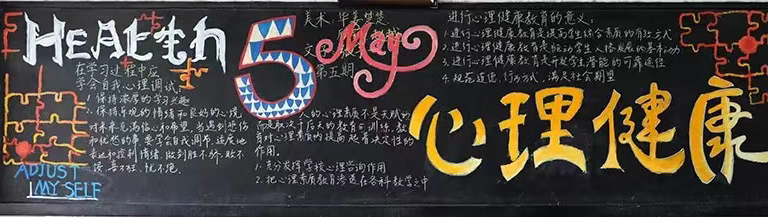 HeAlth
在学习过程中应
学会自我心理调试:
1.保持浓厚的学习兴趣
2.保持乐观的情绪和良好的心境
对未来充满信心和希望,当遇到悲伤
和忧愁的事要学会自我调节,适度地
表达和控制情绪,做到胜不骄、败不
馁、喜不狂、忧不绝。
ADJUST
MY SELF
5
May
美术:华
文
第五期
人的心理素质不是天赋的
而是取决于后天的教育和训练,教
育对心理素质的提高起着决定性的
作用。
1.充分发挥学校心理咨询作用
2.把心理素质教育渗透在各科教学之中
进行心理健康教育的意义:
1.进行心理健康教育是提高学生综合素质的有效方式
2.进行心理健康教育是驱动学生人格发展的基本动力
3.进行心理健康教育是开发学生潜能的可靠途径
4.规范道德、行为方式,满足社会期望
心理健康